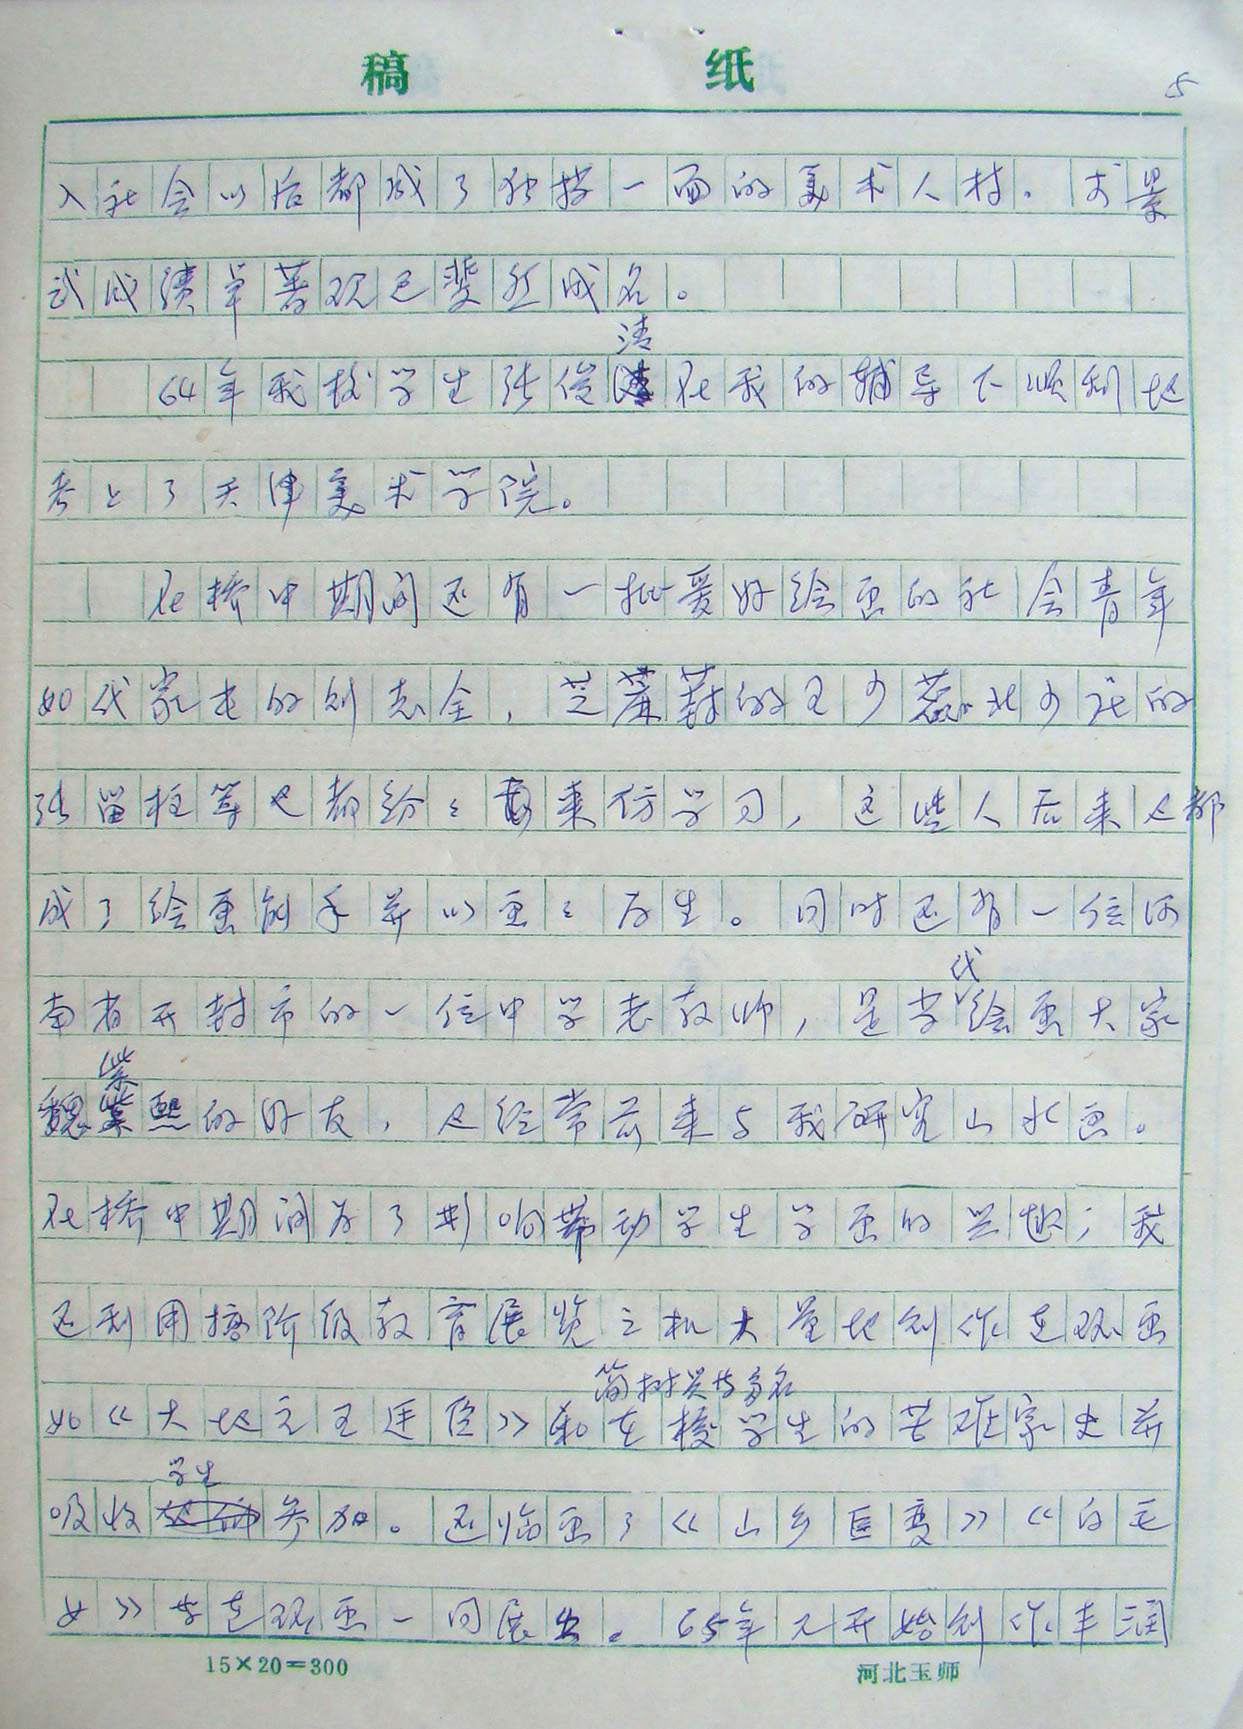 稿 纸
5
入社会以后都成了独挡一面的美术人材。尤景
武成绩卓著现已斐然成名。
清
64年我校学生张俊在我的辅导下顺利地
考上了天津美术学院。
在桥中期间还有一批爱好绘画的社会青年
如代家屯的刘志全，芝蔴莊的王少蕊小北少庄的
张留柱等也都纷纷来仿学习，这些人后来也都
成了绘画能手并以画画为生。同时还有一位河
代
南省开封市的一位中学老教师，是当绘画大家
紫
魏紫熙的好友，也经常前来与我研究山水画。
在桥中期间为了影响带动学生学画的兴趣；我
还利用搞阶级教育展览之机大量地创作连环画
简树兴等多名
如《大地主王连臣》和在校学生的苦难家史并
学生
吸收参加。还临画了《山乡巨变》《白毛
女》等连环画一同展出。65年又开始创作丰润
15×20=300 河北玉师